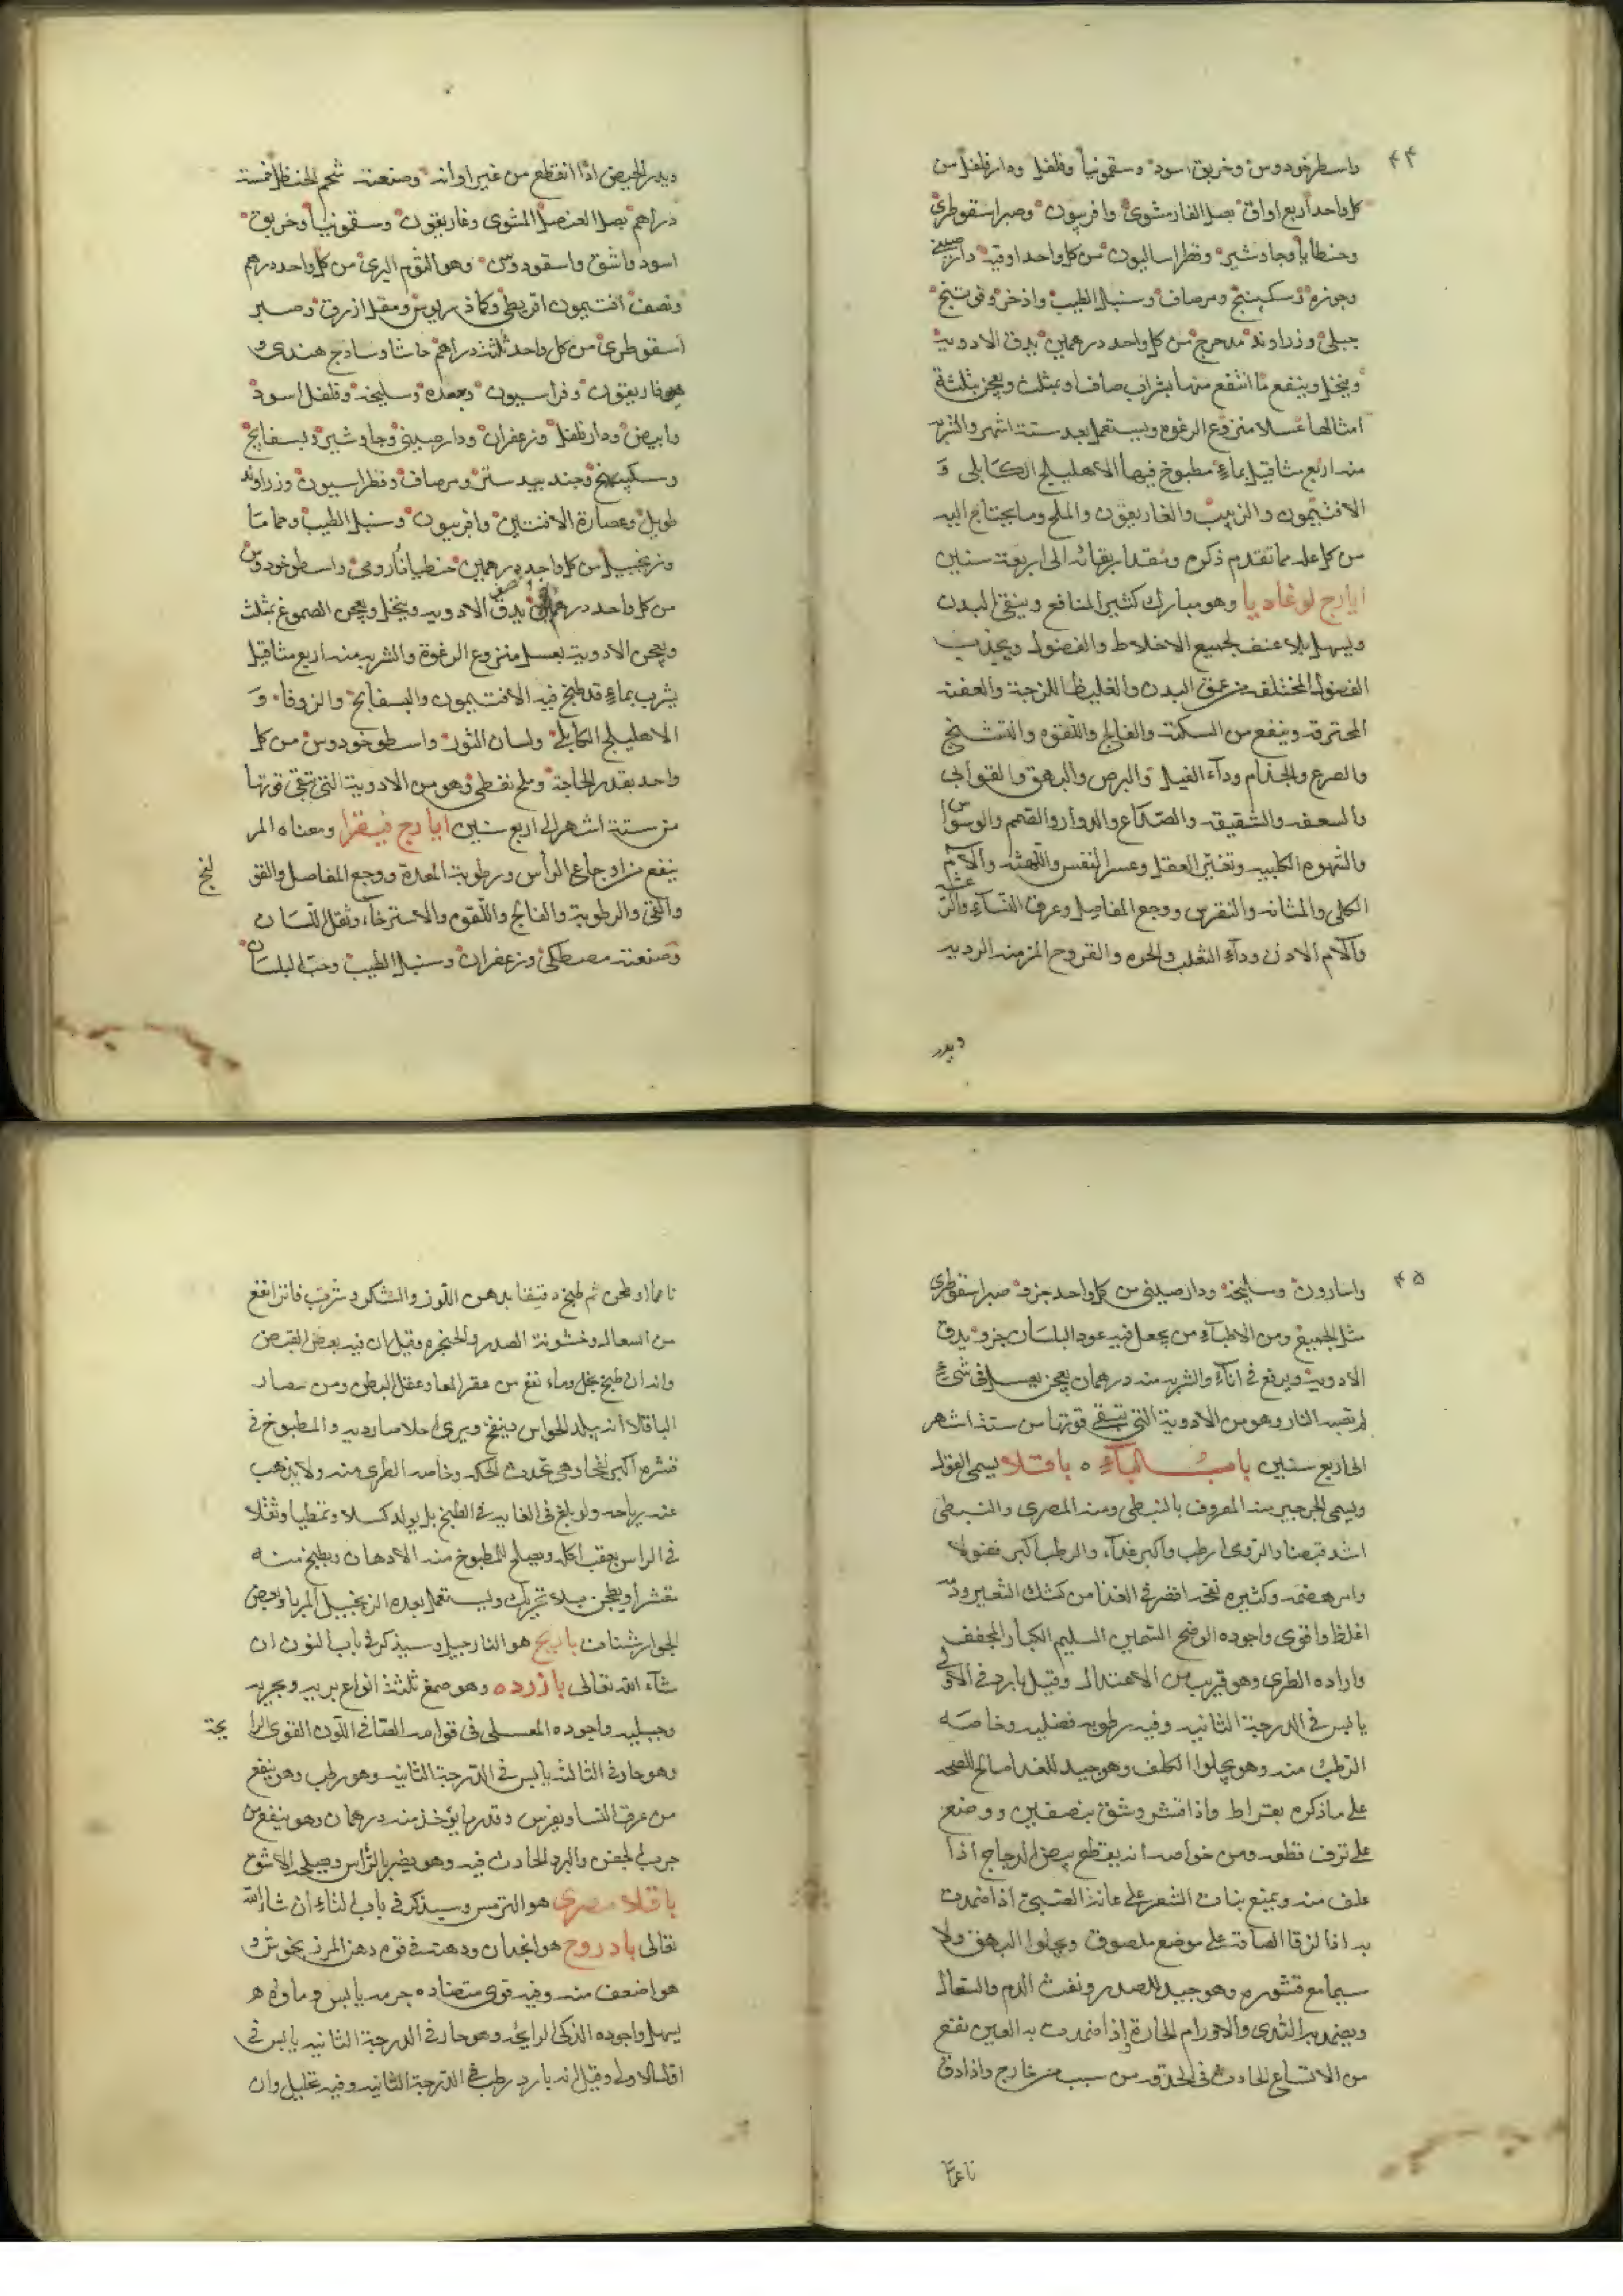 ۴۴
واسطوخودوس وخربق اسود وسقمونيا وفلفل ودارفلفل من
كل واحد أربع اواق بصل الفار مشوى وافربيون وصبر اسقوطرى
وجنطايا وجاوشير وفطراساليون من كل واحد اوقيه دارصينى
وسكبينج ومرصاف وسنبل الطيب واذخر وفوتنج
جبلى وزراوند مدحرج من كل واحد درهمين يدق الادوية
وينخل وينقع ما انتقع منها بشراب صاف او بمثلث ويعجن بثلثة
امثالها عسلا منزوع الرغوه ويستعمل بعد ستة اشهر والشربه
منه اربع مثاقيل بماء مطبوخ فيها الاهليلج الكابلى و
الافتيمون والزبيب والغاريقون والملح وما يحتاج اليه
من كل علة مما تقدم ذكره ومقدار بقائه الى اربعة سنين
ايارج لوغاديا وهو مبارك كثير المنافع وينقى البدن
ويسهل بلا عنف لجميع الاخلاط والفضول ويجذب
الفضول المختلفة من عمق البدن والغليظ اللزجة والعفنة
المحترقة وينفع من السكتة والفالج واللقوه والتشنج
والصرع والجذام ودآء الفيل والبرص والبهق والقوابى
والسعفه والشقيقه والصداع والدوار والصمم والوسواس
والشهوه الكلبيه وتغير العقل وعسر النفس واللهثه وآلام
الكلى والمثانه والنقرس ووجع المفاصل وعرق النساء والرعشه
وآلام الاذن ودآء الثعلب والحره والقروح المزمنه الرديه
ويدر
ويدر الحيض اذا انقطع من غير اوانه وصنعته شحم الحنظل خمسة
دراهم بصل العنصل المشوى وغاريقون وسقمونيا وخربق
اسود واشق واسقوديون وهو الثوم البرى من كل واحد درهم
ونصف افتيمون اقريطى وكماذريوس ومقل ازرق وصبر
اسقوطرى من كل واحد ثلثة دراهم حاشا وسادج هندى و
هوفاريقون وفراسيون وجعده وسليخه وفلفل اسود
وابيض ودارفلفل وزعفران ودارصينى وجاوشير وبسفايج
وسكبينج وجندبيدستر ومرصاف وفطراسيون وزراوند
طويل وعصارة الافسنتين وافربيون وسنبل الطيب وحماما
وزنجبيل من كل واحد درهمين جنطيانا رومى واسطوخودوس
من كل واحد درهم يدق الادويه وينخل ويعجن الصموغ بمثلث
ويعجن الادوية بعسل منزوع الرغوة والشربه منه اربع مثاقيل
يشرب بماء قد طبخ فيه الافتيمون والبسفايج والزوفا و
الاهليلج الكابلى ولسان الثور واسطوخودوس من كل
واحد بقدر الحاجة وملح نفطى وهو من الادوية التى تبقى قوتها
من ستة اشهر الى اربع سنين ايارج فيقرا ومعناه المر
ينفع من اوجاع الرأس ورطوبة المعدة ووجع المفاصل والقولنج
والرطوبة والفالج واللقوه والاسترخاء وثقل اللسان
وصنعته مصطكى وزعفران وسنبل الطيب وحب البلسان
۴۵
واسارون وسليخه ودارصينى من كل واحد جزو صبر اسقوطرى
مثل الجميع ومن الاطباء من يجعل فيه عود البلسان جزو يدق
الادوية ويرفع فى اناء والشربه منه درهمان يعجن بعسل فى شىء
لم تصبه النار وهو من الادوية التى تبقى قوتها من ستة اشهر
الى اربع سنين باب الباء باقلا يسمى الفول
ويسمى الجرجير منه المعروف بالنبطى ومنه المصرى والنبطى
اشد قبضا والرومى ارطب واكبر غذآء والرطب اكبر فضولا
واسرهضمه وكثيره نفخه اقصر فى الغذا من كشك الشعير ودمه
اغلظ واقوى واجوده الواضح السمين السليم الكبار المجفف
واراده الطرى وهو قريب من الاعتدال وقيل بارد فى الاولى
يابس فى الدرجة الثانيه وفيه رطوبه فضليه وخاصه
الرطب منه وهو يجلوا الكلف وهو جيد للغدا صالح للصحه
على ماذكره بقراط واذا قشر وشق بنصفين ووضع
على نزف قطعه ومن خواصه انه يقطع بيض الدجاج اذا
علف منه ويمنع بنات الشعر على عانة الصبى اذا ضمدت
به اذا لزقا الصاقه على موضع ملصوق ويجلوا البهق ولا
سيما مع قشوره وهو جيد للصدر ونفث الدم والسعال
ويضمد به الثدى والاورام الحارة واذا ضمدت به العين نفع
من الاتساع الحادث فى الحدقه من سبب من خارج واذا دق
ناعما
ناعما او طحن ثم طبخ دقيقا بدهن اللوز والسكر وشرب فاترا نفع
من السعال وخشونة الصدر والحنجره وقيل ان فيه بعض القبض
وانه ان طبخ بخل وماء نفع من عقر المعا وعقل البطن ومن مضار
الباقلا انه يبلد الحواس وينفخ ويرى احلاما رديه والمطبوخ فى
قشره اكبر نفخا وهى تحدث الحكه وخاصه الطرى منه ولا يذهب
عنه رياحه ولو بلغ فى الغايه فى الطبخ بل يولد كسلا وتمطيا وثقلا
فى الراس بعقب اكله ويصلح المطبوخ منه الادهان ويطبخ منه
مقشرا ويطحن بلا تحريك ويستعمل بعده الزنجبيل المربا وبعض
الجوارشنات بارنج هو النارجيل وسيذكر فى باب النون ان
شآء الله تعالى بازرده وهو صمغ ثلثة انواع بريه وبحريه
وجبليه واجوده العسلى فى قوامه الصافى اللون القوى الرايحة
وهو حار فى الثالثه يابس فى الدرجة الثانيه وهو رطب وهو ينفع
من عرق النسا ونقرس وقدر ما يؤخذ منه درهمان وهو ينفع من
جرب الجفن والبرد الحادث فيه وهو يضر بالرأس ويصلحه الاشق
باقلا مصرى هو الترمس وسيذكر فى باب التاء ان شاء الله
تعالى بادروج هو ودهنه فى قوه دهن المرزنجوش و
هو اضعف منه وفيه قوى متضاده جرمه يابس وماوه
يسهل واجوده الذكى الرايحه وهو حار فى الدرجة الثانيه يابس فى
اول الاولى وقيل انه بارد رطب فى الدرجة الثانيه وفيه تحليل وان